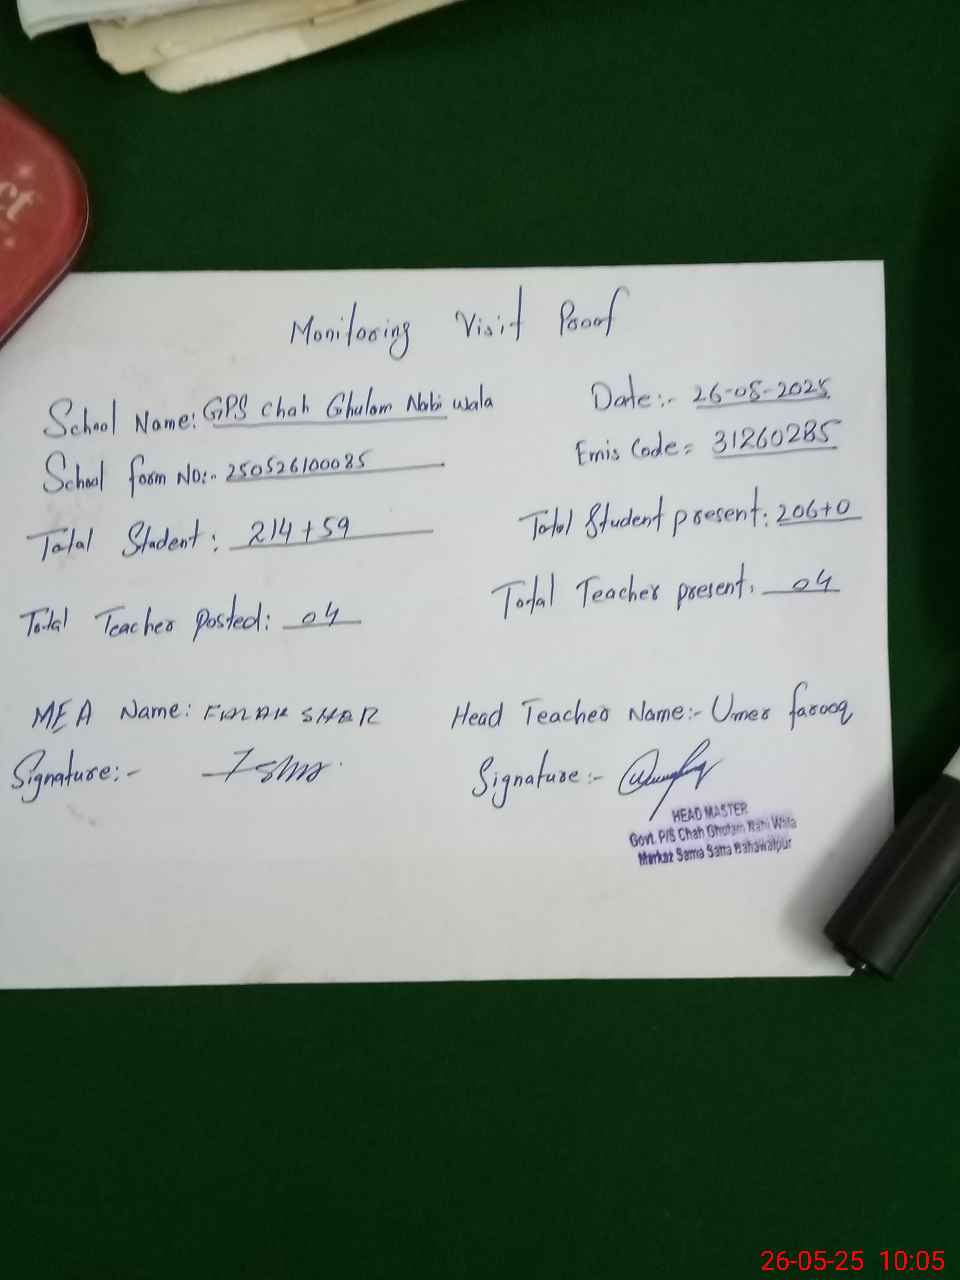 ct
Monitoring Visit Proof
School Name: GPS Chah Ghulam Nabi wala
Date:- 26-05-2025
School form No:- 250526100085
Emis Code= 31260285
Total Student: 214+59
Total Student present: 206+0
Total Teacher Posted: 04
Total Teacher present: 04
MEA Name: SHER
Head Teacher Name:- Umer farooq
Signature:-
Signature:-
HEAD MASTER
Govt. P/S Chah Ghulam Nabi Wala
Markaz Sama Satta Bahawalpur
26-05-25 10:05